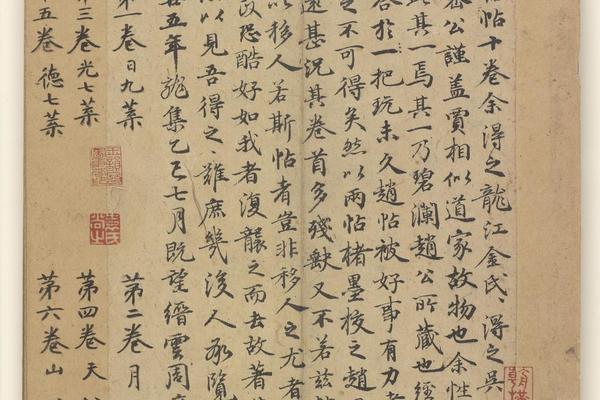 帖十卷余淂之龍江金氏淂之吳
公謹盖賈相似道家故物也余性
其一焉其一乃碧瀾趙公所藏也經
於一把玩未久趙帖被好事有力者
之不可得矣然以兩帖楮墨挍之趙
甚況其卷首多殘缺又不若茲帖
以移人若斯帖者豈非移人之尤者
恐酷好如我者復襲之而去故著
以見吾得之難庶幾後人
五年龍集乙巳七月既望縉雲周
第一卷日九葉
第二卷月
三卷光七葉
第四卷天
五卷德七葉
第六卷山